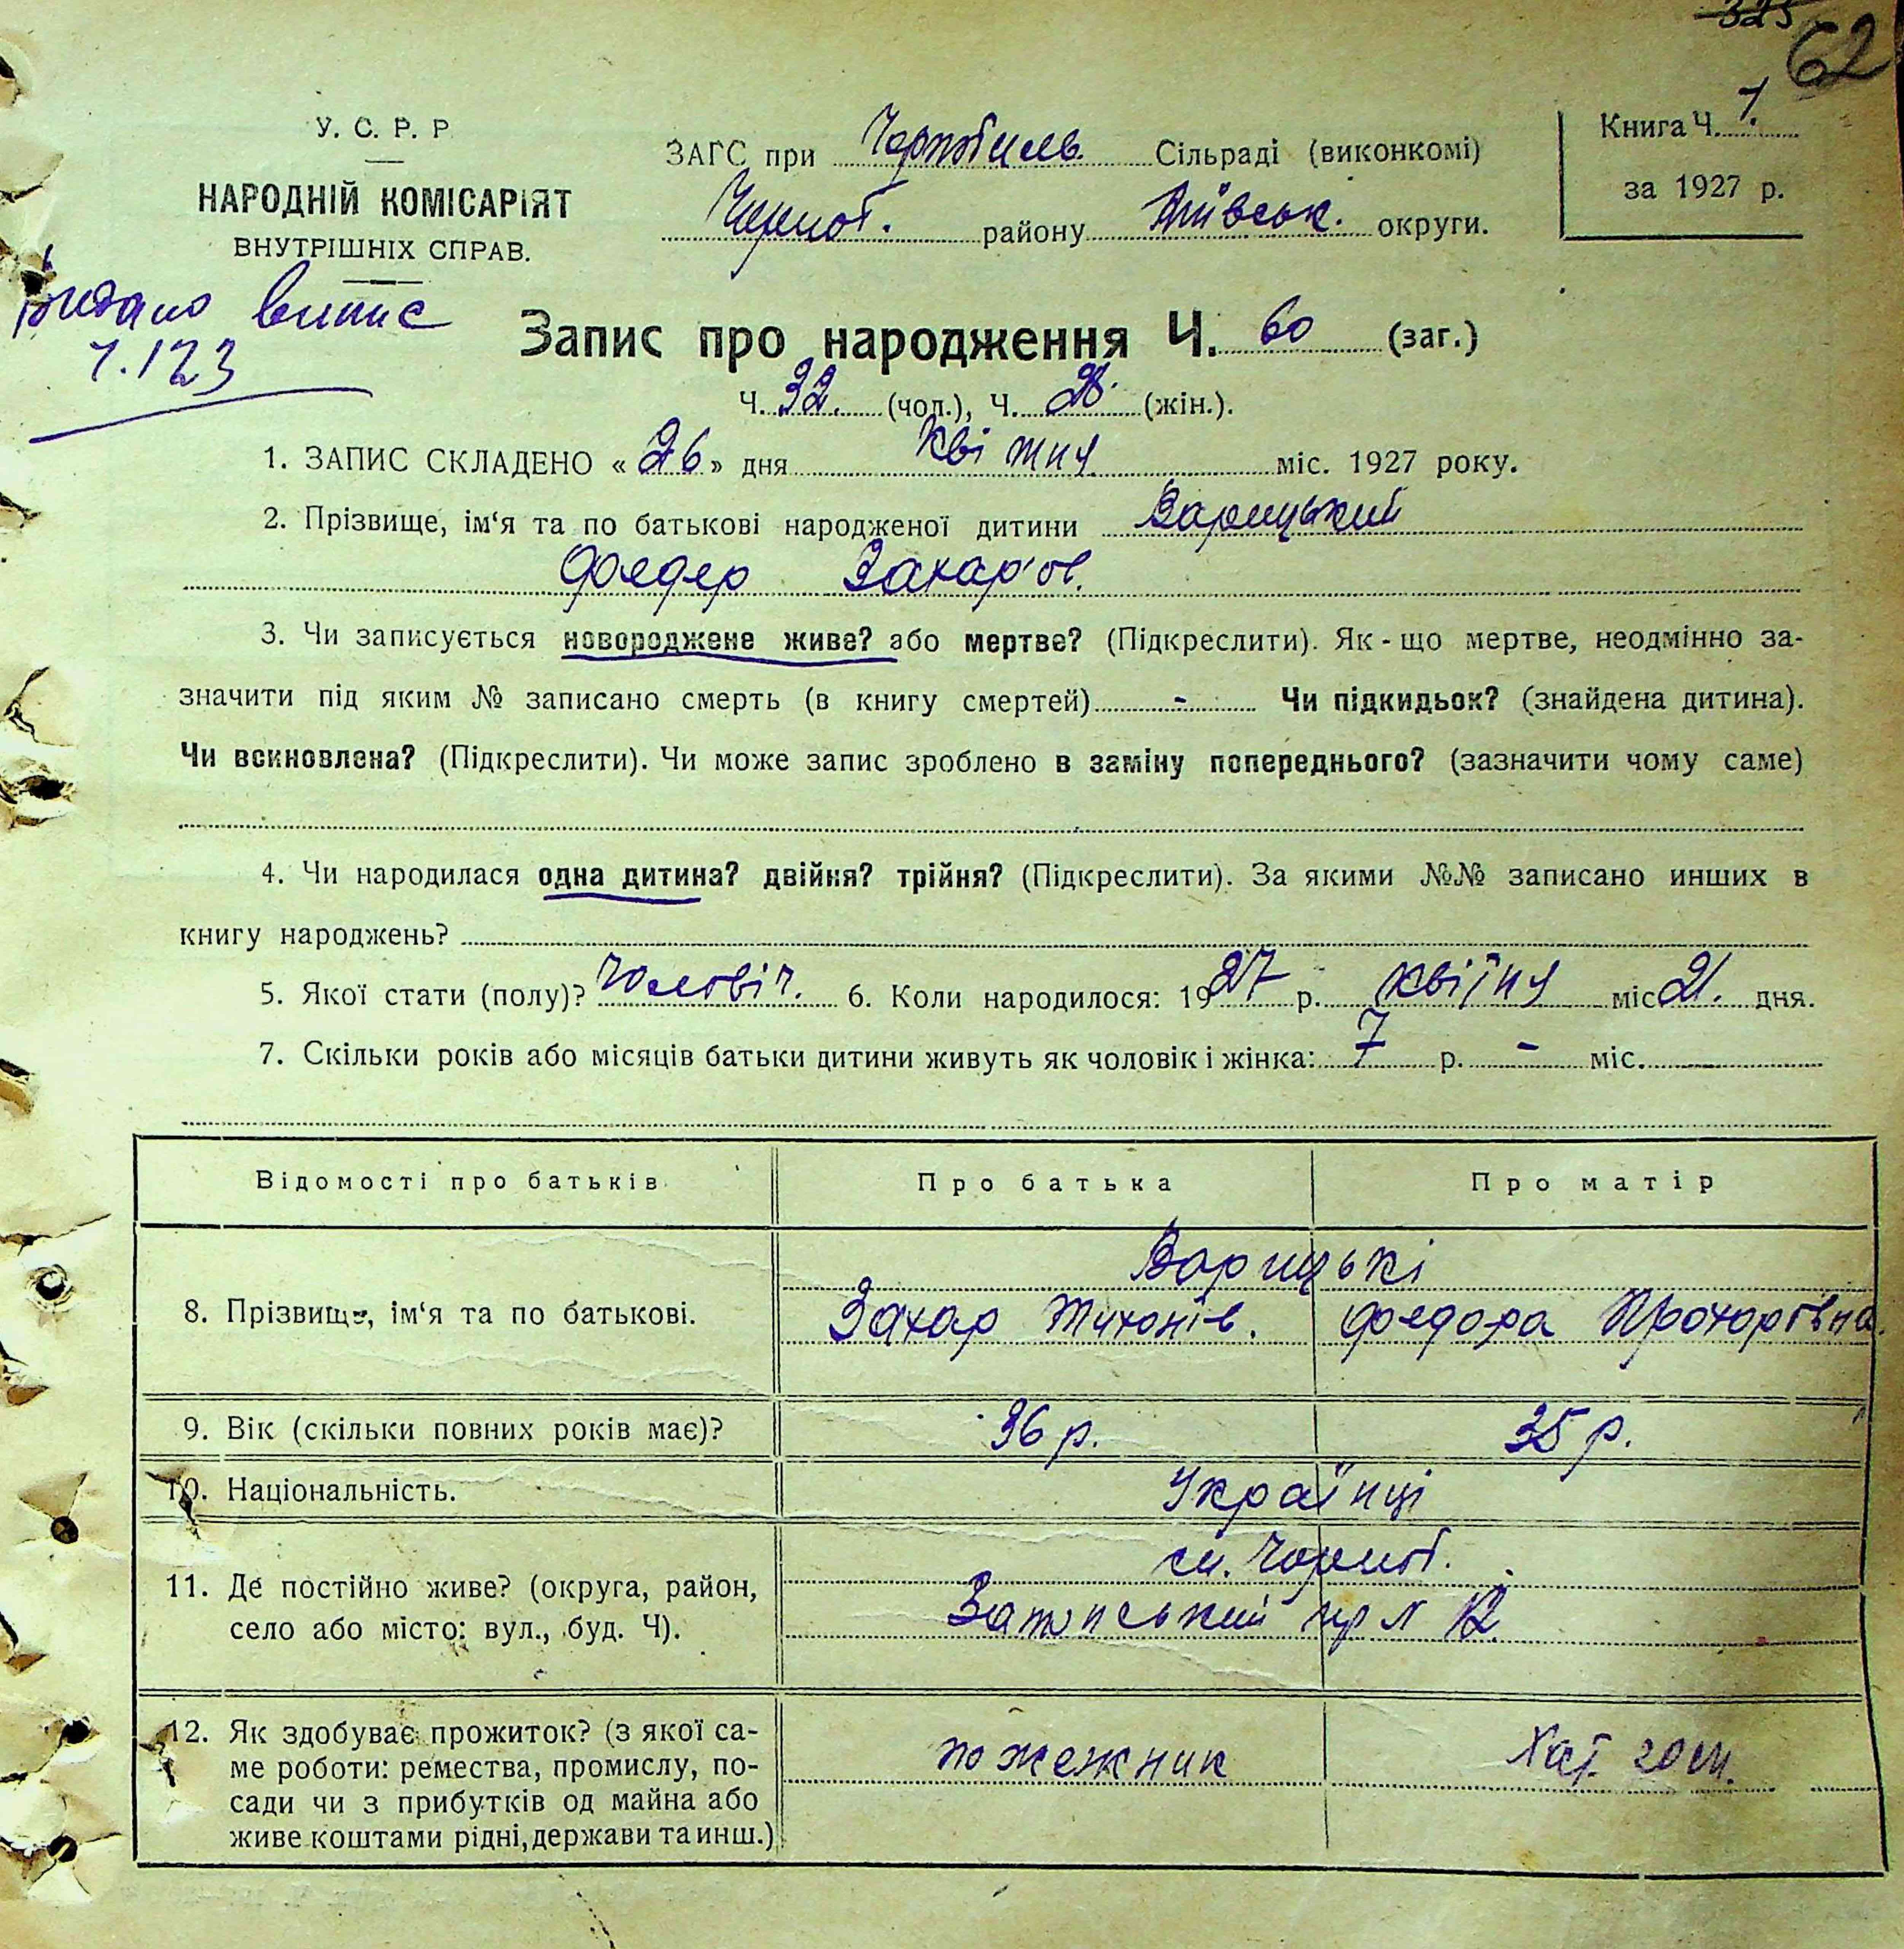 325
62
У. С. Р. Р
НАРОДНІЙ КОМІСАРІЯТ
ВНУТРІШНІХ СПРАВ.
ЗАГС при Чорнобиль Сільраді (виконкомі)
Чорноб. району Київськ. округи.
Книга Ч. 1.
за 1927 р.
Видано випис
1.123
Запис про народження Ч. 60 (заг.)
Ч. 32. (чол.), Ч. 28. (жін.).
1. ЗАПИС СКЛАДЕНО «26» дня Квітня міс. 1927 року.
2. Прізвище, ім'я та по батькові народженої дитини Варицький
Фредер Захар'ов.
3. Чи записується новороджене живе? або мертве? (Підкреслити). Як - що мертве, неодмінно за-
значити під яким № записано смерть (в книгу смертей) - Чи підкидьок? (знайдена дитина).
Чи всиновлена? (Підкреслити). Чи може запис зроблено в заміну попереднього? (зазначити чому саме)
4. Чи народилася одна дитина? двійня? трійня? (Підкреслити). За якими №№ записано инших в
книгу народжень?
5. Якої стати (полу)? Чоловіч. 6. Коли народилося: 1927 р. квітня міс 21. дня.
7. Скільки років або місяців батьки дитини живуть як чоловік і жінка: 7 р. - міс.
Відомості про батьків
Про батька
Про матір
8. Прізвище, ім'я та по батькові.
Варицькі
Захар Тихонів.
Федора Прохорівна.
9. Вік (скільки повних років має)?
36 р.
35 р.
10. Національність.
Українці
11. Де постійно живе? (округа, район,
село або місто; вул., буд. Ч).
м. Чорноб.
пр N 12
12. Як здобуває прожиток? (з якої са-
ме роботи: ремества, промислу, по-
сади чи з прибутків од майна або
живе коштами рідні, держави та инш.)
пожежник
Хат. госп.